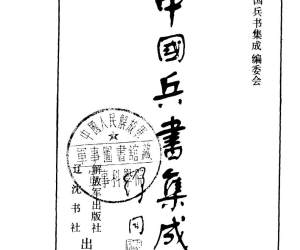 国兵书集成 编委会
中國兵書集成
中國人民解放軍
軍事圖書館藏
軍事科學
解放军出版社
辽沈书社
出